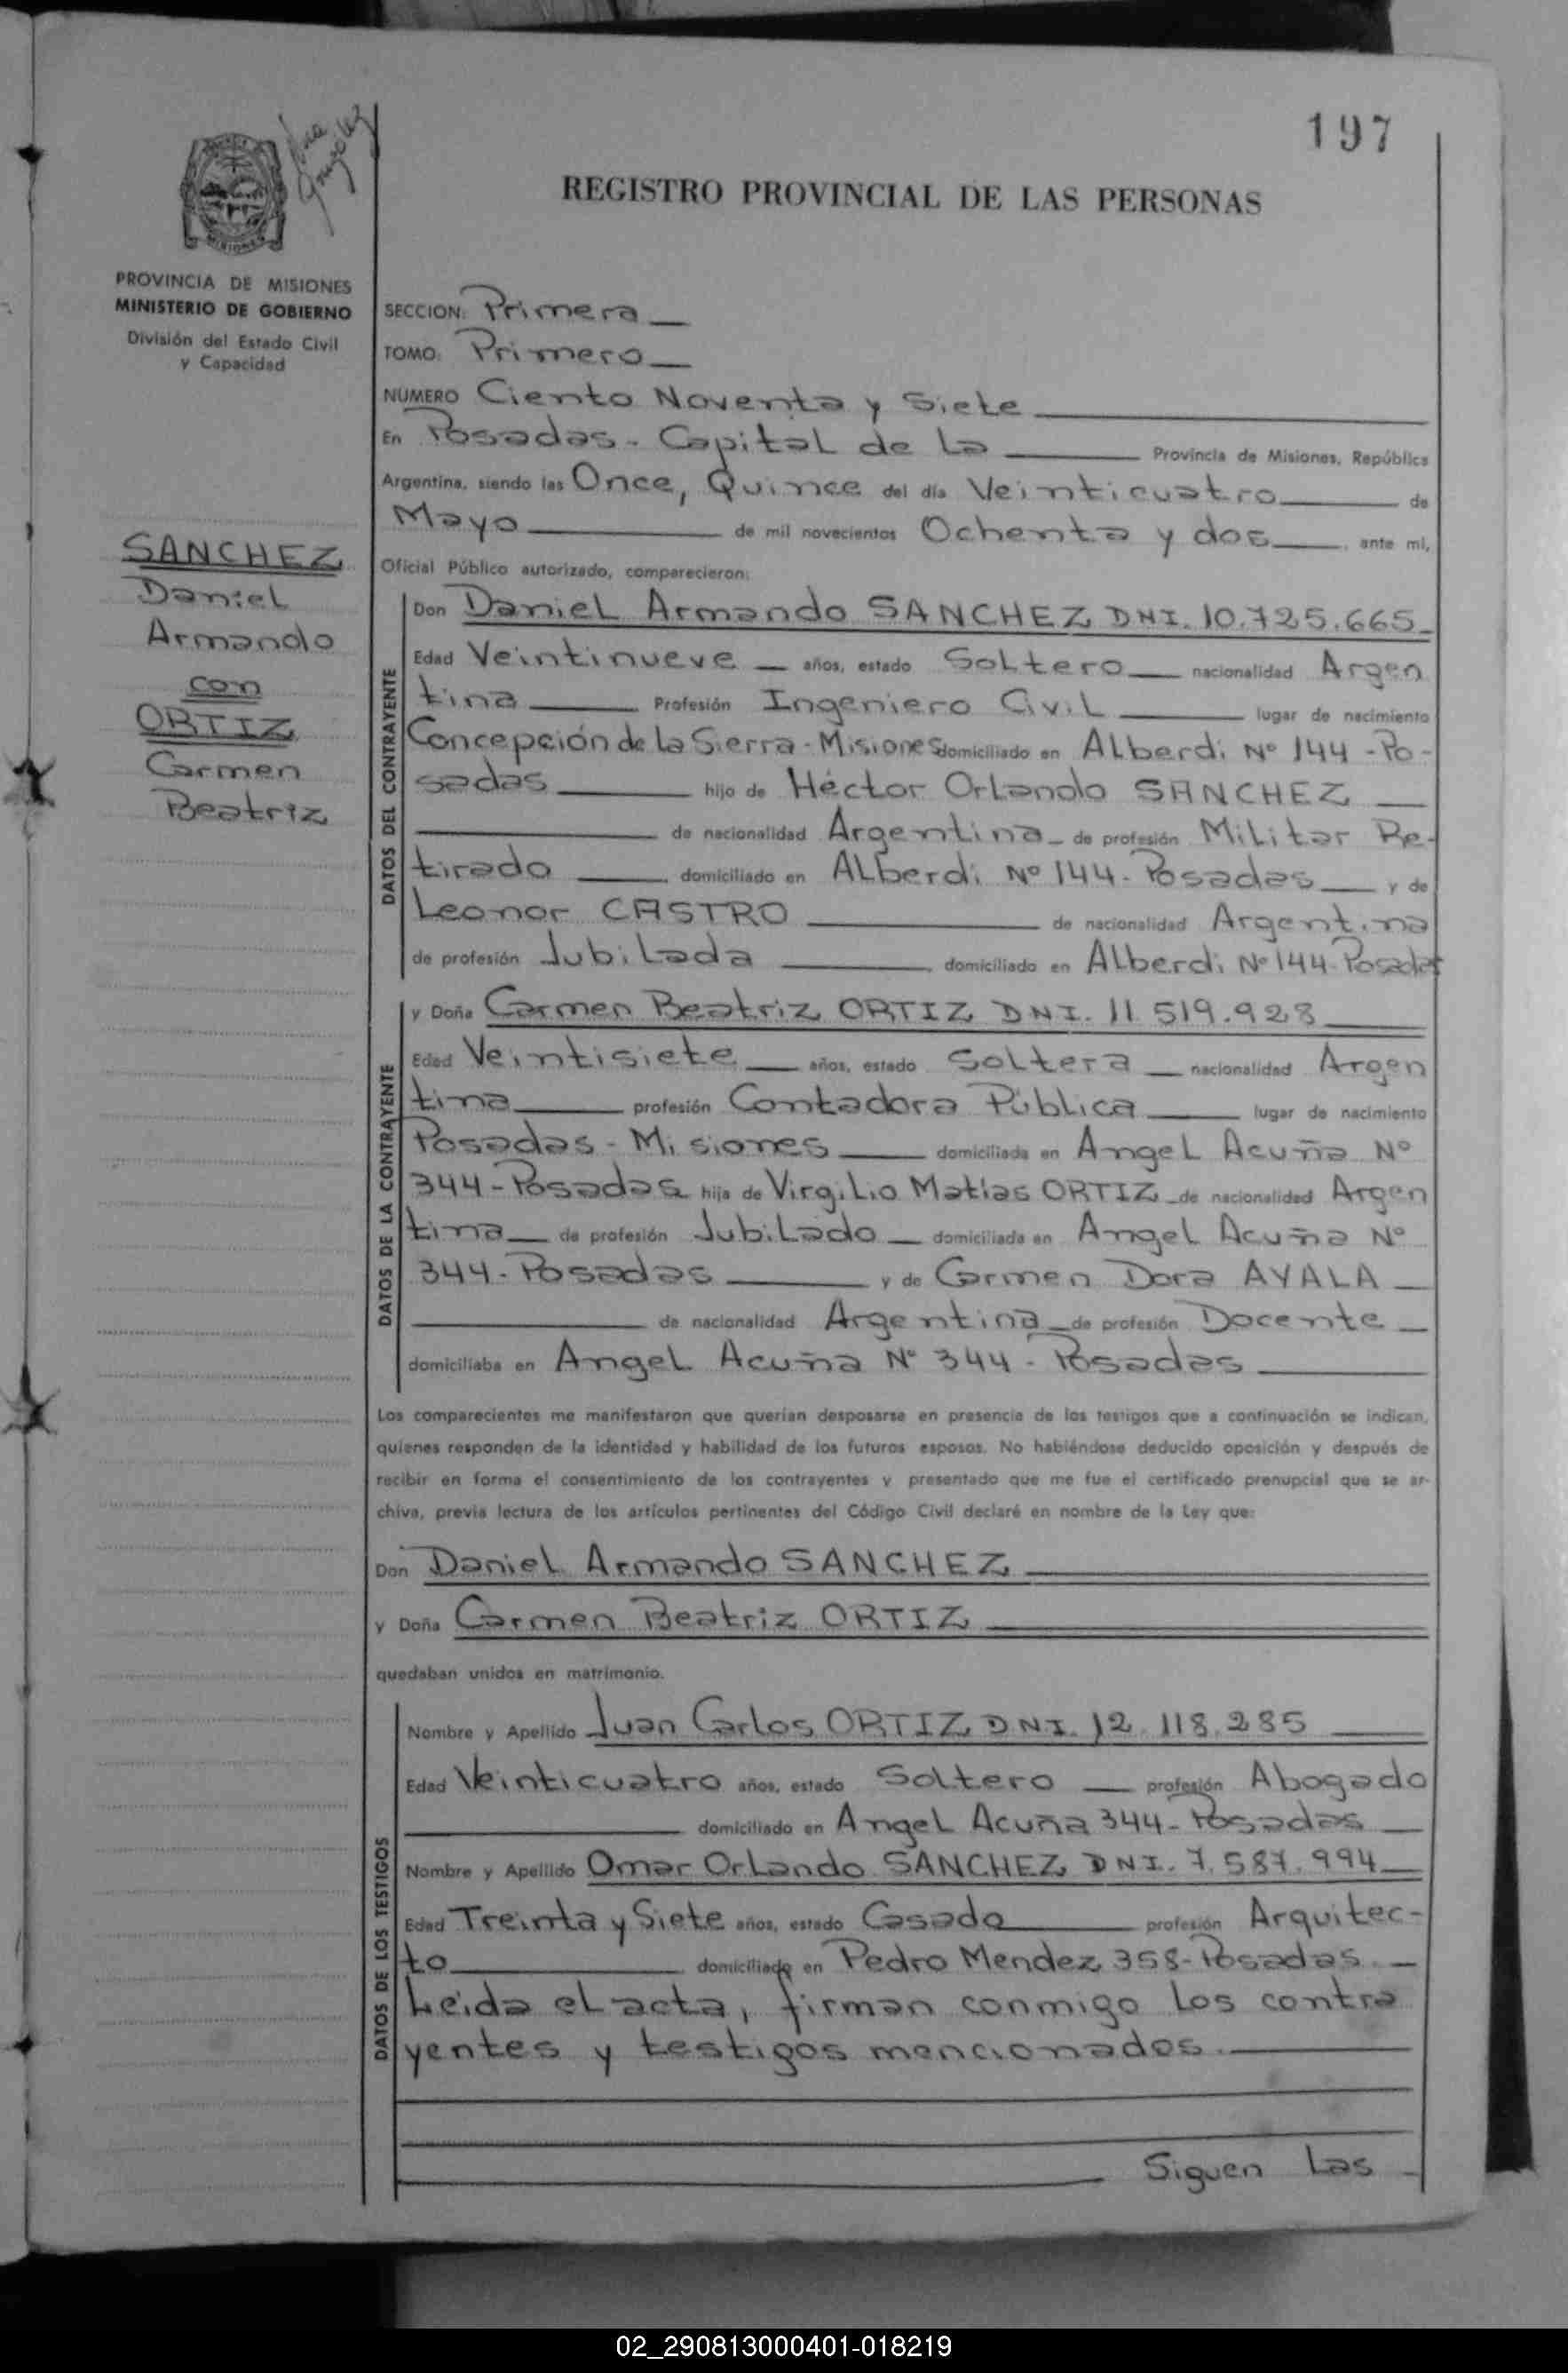 197
REGISTRO PROVINCIAL DE LAS PERSONAS
MISIONES
PROVINCIA DE MISIONES
MINISTERIO DE GOBIERNO
División del Estado Civil
y Capacidad
SANCHEZ
Daniel
Armando
con
ORTIZ
Carmen
Beatriz
SECCION: Primera
TOMO: Primero
NUMERO Ciento Noventa y Siete
En Posadas - Capital de La Provincia de Misiones, República
Argentina, siendo las Once, Quince del día Veinticuatro de
Mayo de mil novecientos Ochenta y dos, ante mí,
Oficial Público autorizado, comparecieron:
DATOS DEL CONTRAYENTE
Don Daniel Armando SANCHEZ DNI. 10.725.665
Edad Veintinueve años, estado Soltero nacionalidad Argen
tina Profesión Ingeniero Civil lugar de nacimiento
Concepción de La Sierra - Misiones domiciliado en Alberdi Nº 144 - Po-
sadas hijo de Héctor Orlando SANCHEZ
de nacionalidad Argentina de profesión Militar Re-
tirado domiciliado en Alberdi Nº 144 - Posadas y de
Leonor CASTRO de nacionalidad Argentina
de profesión Jubilada domiciliado en Alberdi Nº 144 - Posadas
DATOS DE LA CONTRAYENTE
y Doña Carmen Beatriz ORTIZ DNI. 11.519.928
Edad Veintisiete años, estado Soltera nacionalidad Argen
tina profesión Contadora Pública lugar de nacimiento
Posadas - Misiones domiciliada en Angel Acuña Nº
344 - Posadas hija de Virgilio Matías ORTIZ de nacionalidad Argen
tina de profesión Jubilado domiciliada en Angel Acuña Nº
344 - Posadas y de Carmen Dora AYALA
de nacionalidad Argentina de profesión Docente
domiciliaba en Angel Acuña Nº 344 - Posadas
Los comparecientes me manifestaron que querían desposarse en presencia de los testigos que a continuación se indican,
quienes responden de la identidad y habilidad de los futuros esposos. No habiéndose deducido oposición y después de
recibir en forma el consentimiento de los contrayentes y presentado que me fue el certificado prenupcial que se ar-
chiva, previa lectura de los artículos pertinentes del Código Civil declaré en nombre de la Ley que:
Don Daniel Armando SANCHEZ
y Doña Carmen Beatriz ORTIZ
quedaban unidos en matrimonio.
DATOS DE LOS TESTIGOS
Nombre y Apellido Juan Carlos ORTIZ DNI. 12.118.285
Edad Veinticuatro años, estado Soltero profesión Abogado
domiciliado en Angel Acuña 344 - Posadas
Nombre y Apellido Omar Orlando SANCHEZ DNI. 7.587.994
Edad Treinta y Siete años, estado Casado profesión Arquitec-
to domiciliado en Pedro Mendez 358 - Posadas.
Leida el acta, firman conmigo Los contra
yentes y testigos mencionados.
Siguen Las
02_290813000401-018219